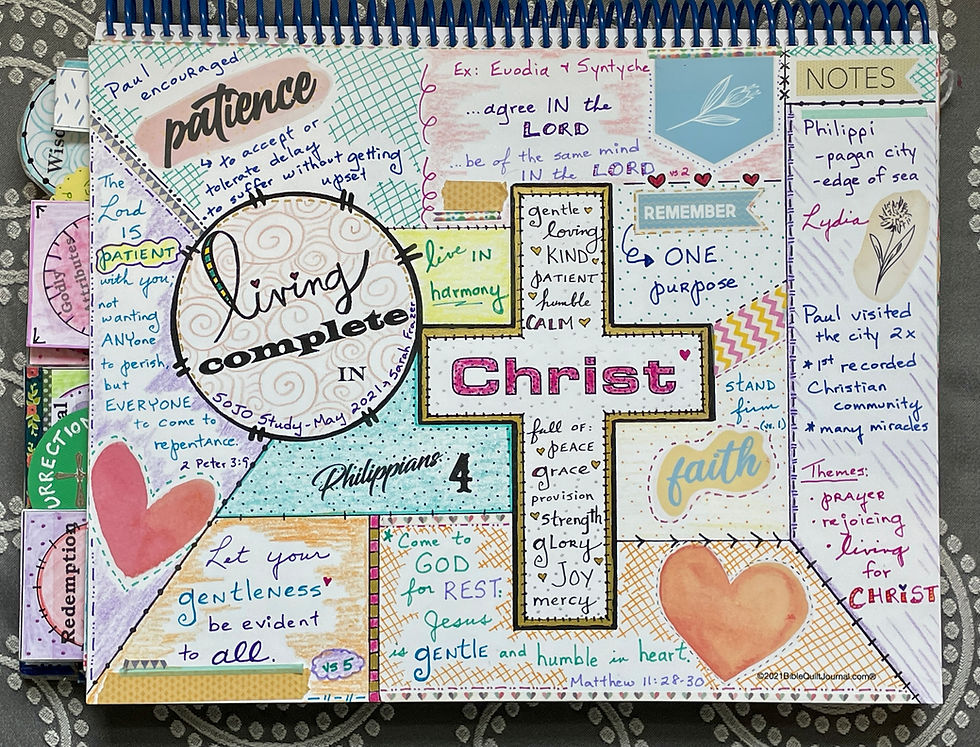 Paul
encouraged
patience
↳ to accept or
tolerate delay
↳ to suffer without getting
upset
Ex: Euodia & Syntyche
...agree IN the
LORD
...be of the same mind
IN the LORD
vs 2
REMEMBER
ONE
purpose
The
Lord
is
PATIENT
with you,
not
wanting
ANYone
to perish,
but
EVERYONE
to come to
repentance.
2 Peter 3:9
living
complete
IN
SOJO Study - May 2021 → Sarah Frazer
live IN
harmony
gentle
loving
KIND
PATIENT
humble
CALM
Christ
full of:
PEACE
grace
provision
strength
gLORY
JOY
mercy
stAND
firm
(vs. 1)
faith
Philippians: 4
Let your
gentleness
be evident
to all.
vs 5
*Come to
GOD
for REST.
Jesus
is gENTLE and humble in heart.
Matthew 11:28-30
©2021BibleQuiltJournal.com®
NOTES
Philippi
- pagan city
- edge of sea
Lydia
Paul visited
the city 2x
* 1st recorded
Christian
community
* many miracles
Themes:
· prayer
· rejoicing
· living
for
CHRIST
Wisd
Godly
Attributes
al
URRECTION
Redemption